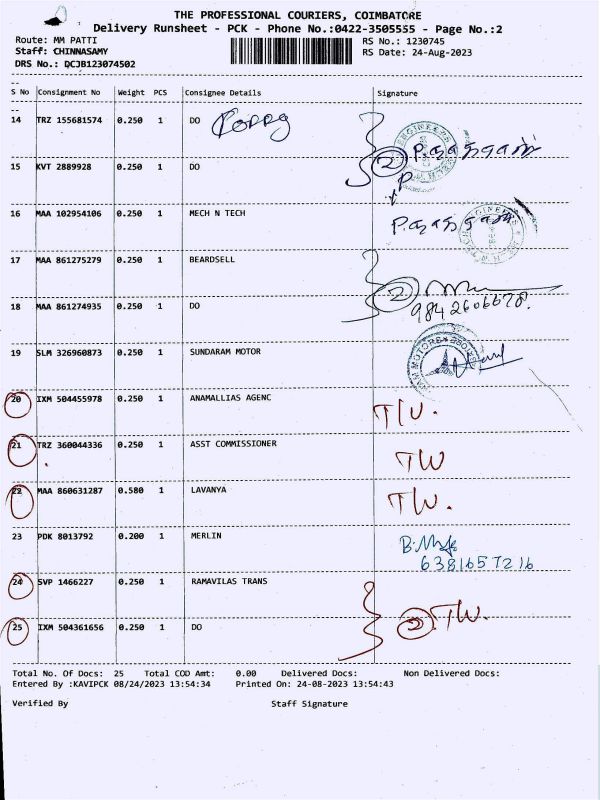 THE PROFESSIONAL COURIERS, COIMBATORE
Delivery Runsheet - PCK - Phone No.:0422-3505555 - Page No.:2
Route: MM PATTI
RS No.: 1230745
Staff: CHINNASAMY
RS Date: 24-Aug-2023
DRS No.: DCJB123074502
S No Consignment No Weight PCS Consignee Details Signature
14 TRZ 155681574 0.250 1 DO
15 KVT 2889928 0.250 1 DO
2
16 MAA 102954106 0.250 1 MECH N TECH
17 MAA 861275279 0.250 1 BEARDSELL
2
18 MAA 861274935 0.250 1 DO
9842606678.
19 SLM 326960873 0.250 1 SUNDARAM MOTOR
20 IXM 504455978 0.250 1 ANAMALLIAS AGENC
T/W.
21 TRZ 360044336 0.250 1 ASST COMMISSIONER
TW
22 MAA 860631287 0.580 1 LAVANYA
TW.
23 PDK 8013792 0.200 1 MERLIN
6381657216
24 SVP 1466227 0.250 1 RAMAVILAS TRANS
2 TW.
25 IXM 504361656 0.250 1 DO
Total No. Of Docs: 25 Total COD Amt: 0.00 Delivered Docs: Non Delivered Docs:
Entered By :KAVIPCK 08/24/2023 13:54:34 Printed On: 24-08-2023 13:54:43
Verified By Staff Signature